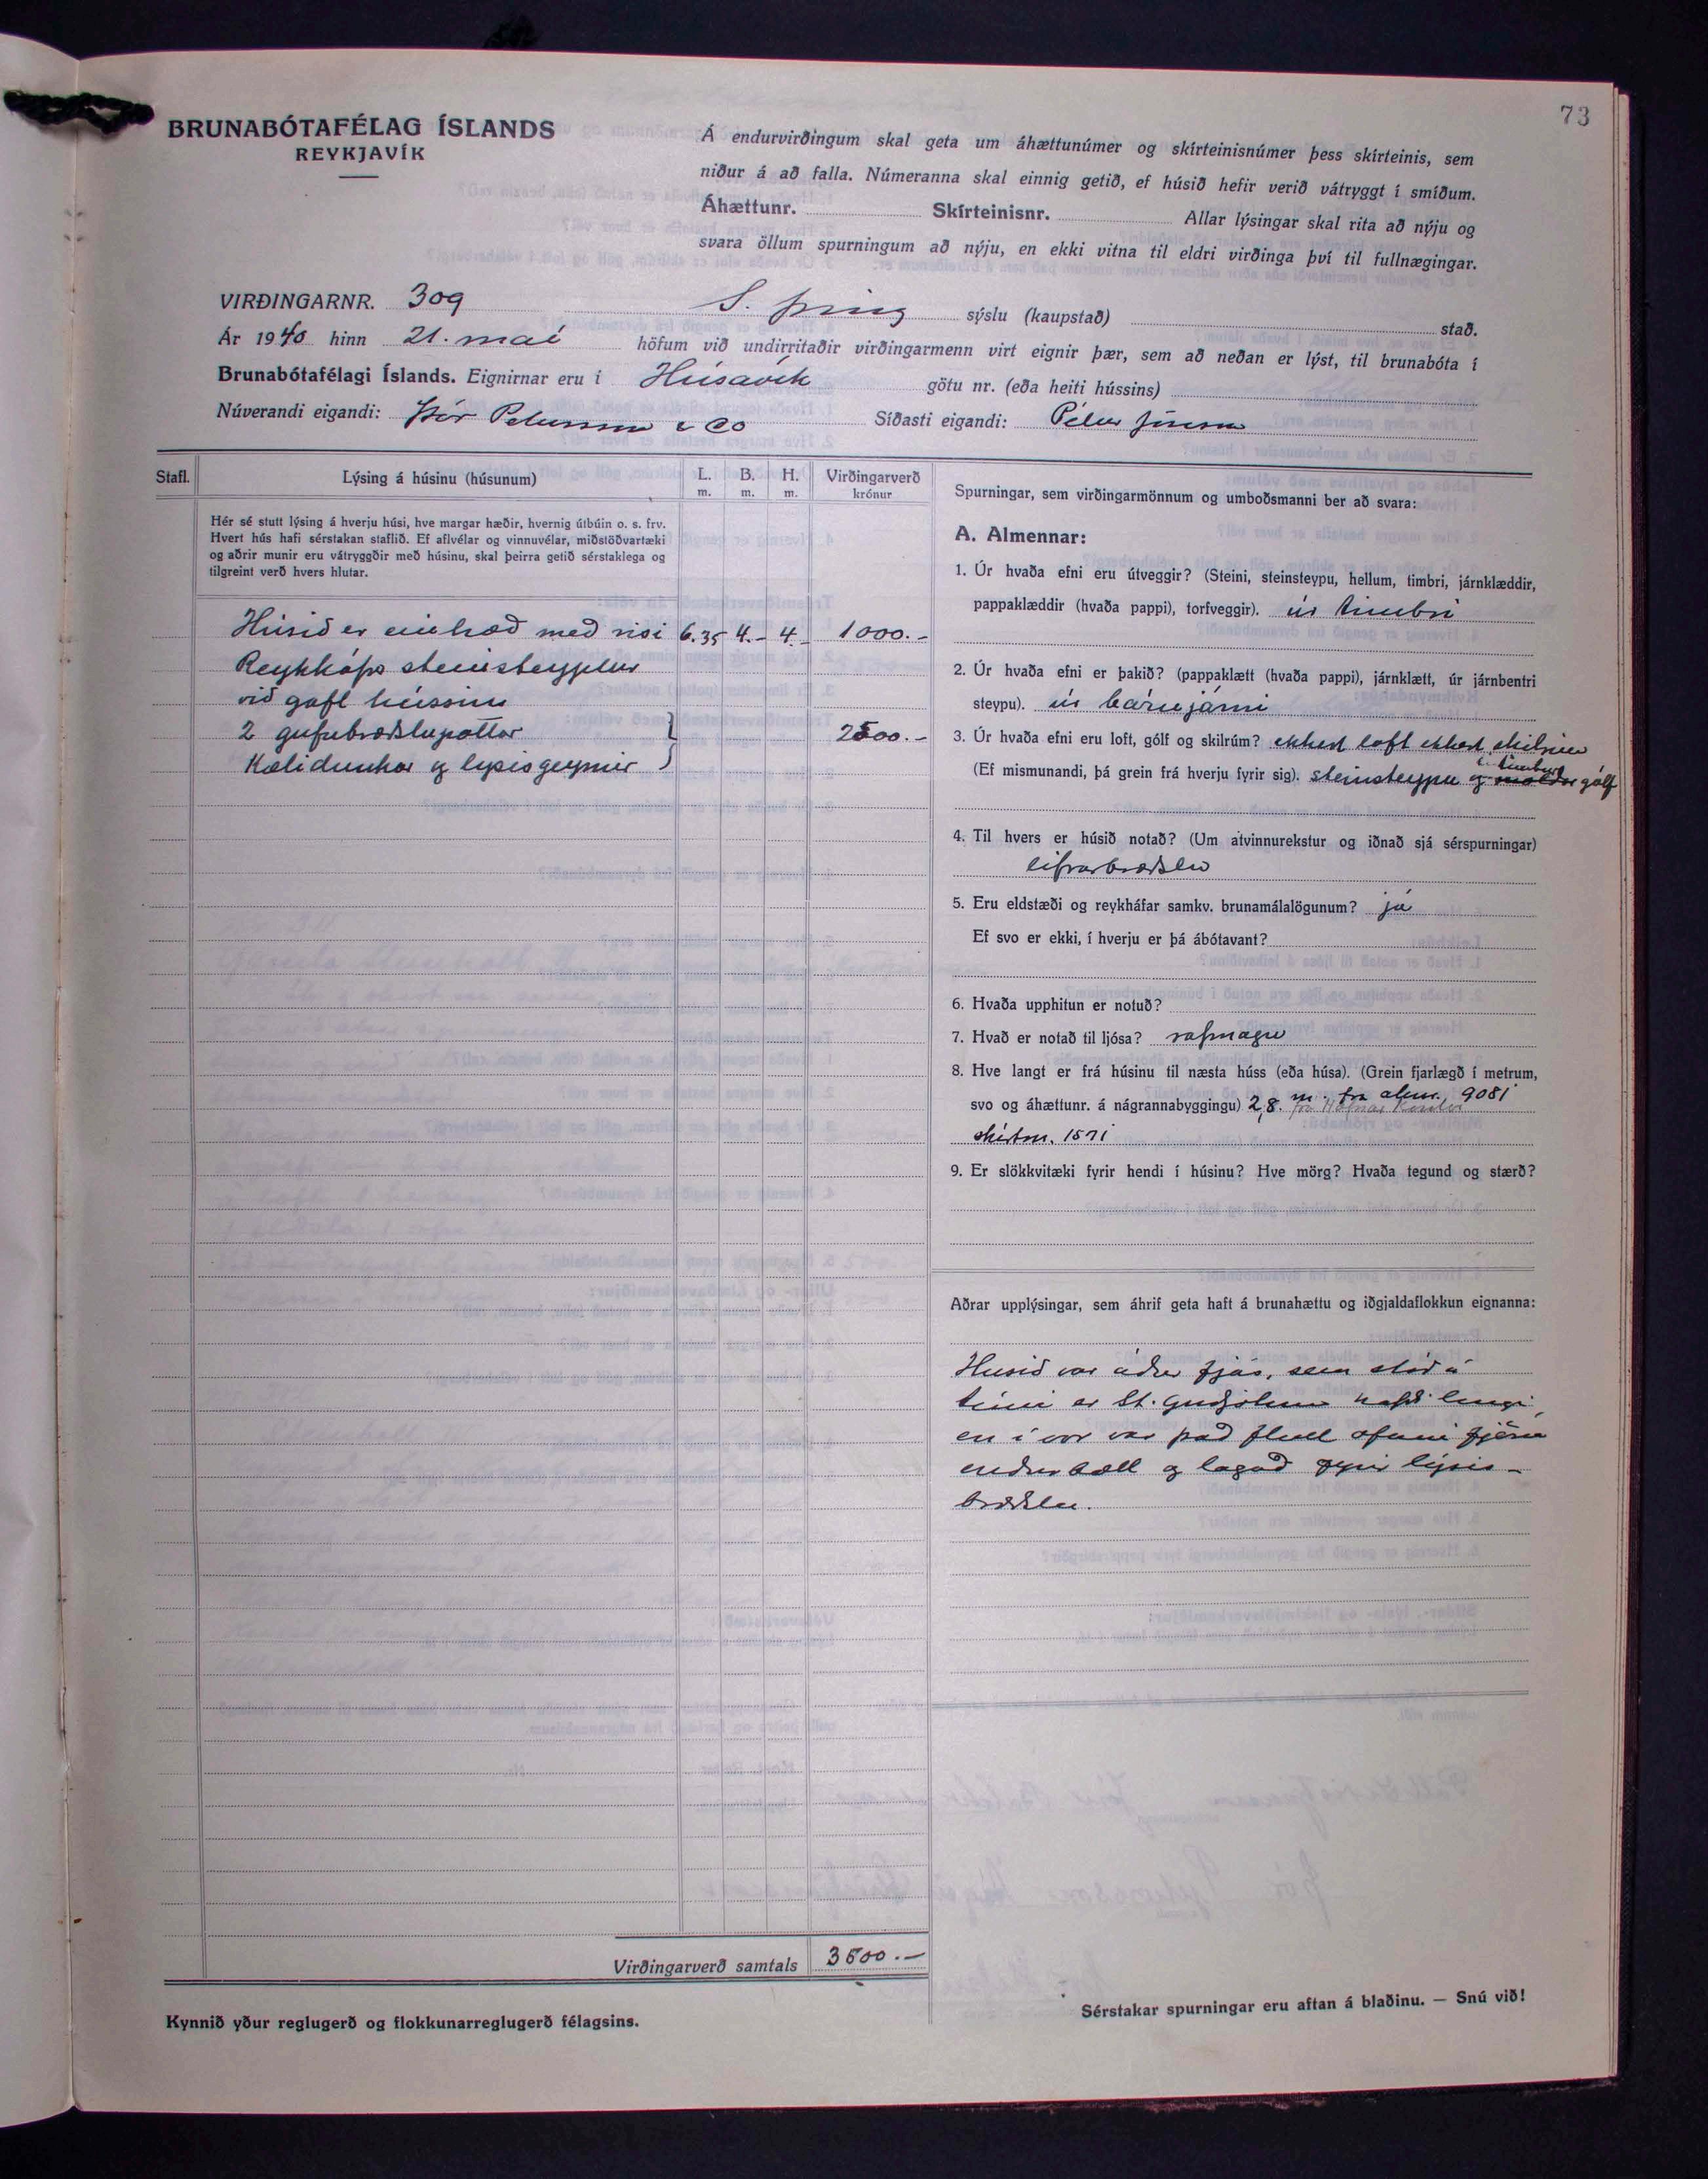 73
BRUNABÓTAFÉLAG ÍSLANDS
REYKJAVÍK
Á endurvirðingum skal geta um áhættunúmer og skírteinisnúmer þess skírteinis, sem
niður á að falla. Númeranna skal einnig getið, ef húsið hefir verið vátryggt í smíðum.
Áhættunr. Skírteinisnr. Allar lýsingar skal rita að nýju og
svara öllum spurningum að nýju, en ekki vitna til eldri virðinga því til fullnægingar.
VIRÐINGARNR. 309 S. Þing sýslu (kaupstað) stað.
Ár 1940 hinn 21. maí höfum við undirritaðir virðingarmenn virt eignir þær, sem að neðan er lýst, til brunabóta í
Brunabótafélagi Íslands. Eignirnar eru í Húsavík götu nr. (eða heiti hússins)
Núverandi eigandi: Þór Pétursson & Co Síðasti eigandi: Pétur Jónsson
Stafl. Lýsing á húsinu (húsunum) L. m. B. m. H. m. Virðingarverð krónur
Hér sé stutt lýsing á hverju húsi, hve margar hæðir, hvernig útbúin o. s. frv.
Hvert hús hafi sérstakan staflið. Ef aflvélar og vinnuvélar, miðstöðvartæki
og aðrir munir eru vátryggðir með húsinu, skal þeirra getið sérstaklega og
tilgreint verð hvers hlutar.
Húsið er ein hæð með risi 6.35 4.- 4.- 1000.-
Reykháfur steinsteyptur
við gafl hússins
2 gufubræðslupottar 2500.-
Kælidunkar og lýsisgeymir
Virðingarverð samtals 3500.-
Kynnið yður reglugerð og flokkunarreglugerð félagsins.
Spurningar, sem virðingarmönnum og umboðsmanni ber að svara:
A. Almennar:
1. Úr hvaða efni eru útveggir? (Steini, steinsteypu, hellum, timbri, járnklæddir,
pappaklæddir (hvaða pappi), torfveggir). úr timbri
2. Úr hvaða efni er þakið? (pappaklætt (hvaða pappi), járnklætt, úr járnbentri
steypu). úr bárujárni
3. Úr hvaða efni eru loft, gólf og skilrúm? ekkert loft ekkert skilrúm
(Ef mismunandi, þá grein frá hverju fyrir sig). steinsteypu og timbur gólf
4. Til hvers er húsið notað? (Um atvinnurekstur og iðnað sjá sérspurningar)
lifrarbræðslu
5. Eru eldstæði og reykháfar samkv. brunamálalögunum? já
Ef svo er ekki, í hverju er þá ábótavant?
6. Hvaða upphitun er notuð?
7. Hvað er notað til ljósa? rafmagn
8. Hve langt er frá húsinu til næsta húss (eða húsa). (Grein fjarlægð í metrum,
svo og áhættunr. á nágrannabyggingu) 2,8. m. frá áhnr. 9081
skírtnr. 1571
9. Er slökkvitæki fyrir hendi í húsinu? Hve mörg? Hvaða tegund og stærð?
Aðrar upplýsingar, sem áhrif geta haft á brunahættu og iðgjaldaflokkun eignanna:
Húsið var áður fjós, sem stóð á
túni er St. Guðjohnsen hafði lengi,
en í vor var það flutt ofan í fjöru
endurbætt og lagað fyrir lýsis-
bræðslu.
Sérstakar spurningar eru aftan á blaðinu. — Snú við!